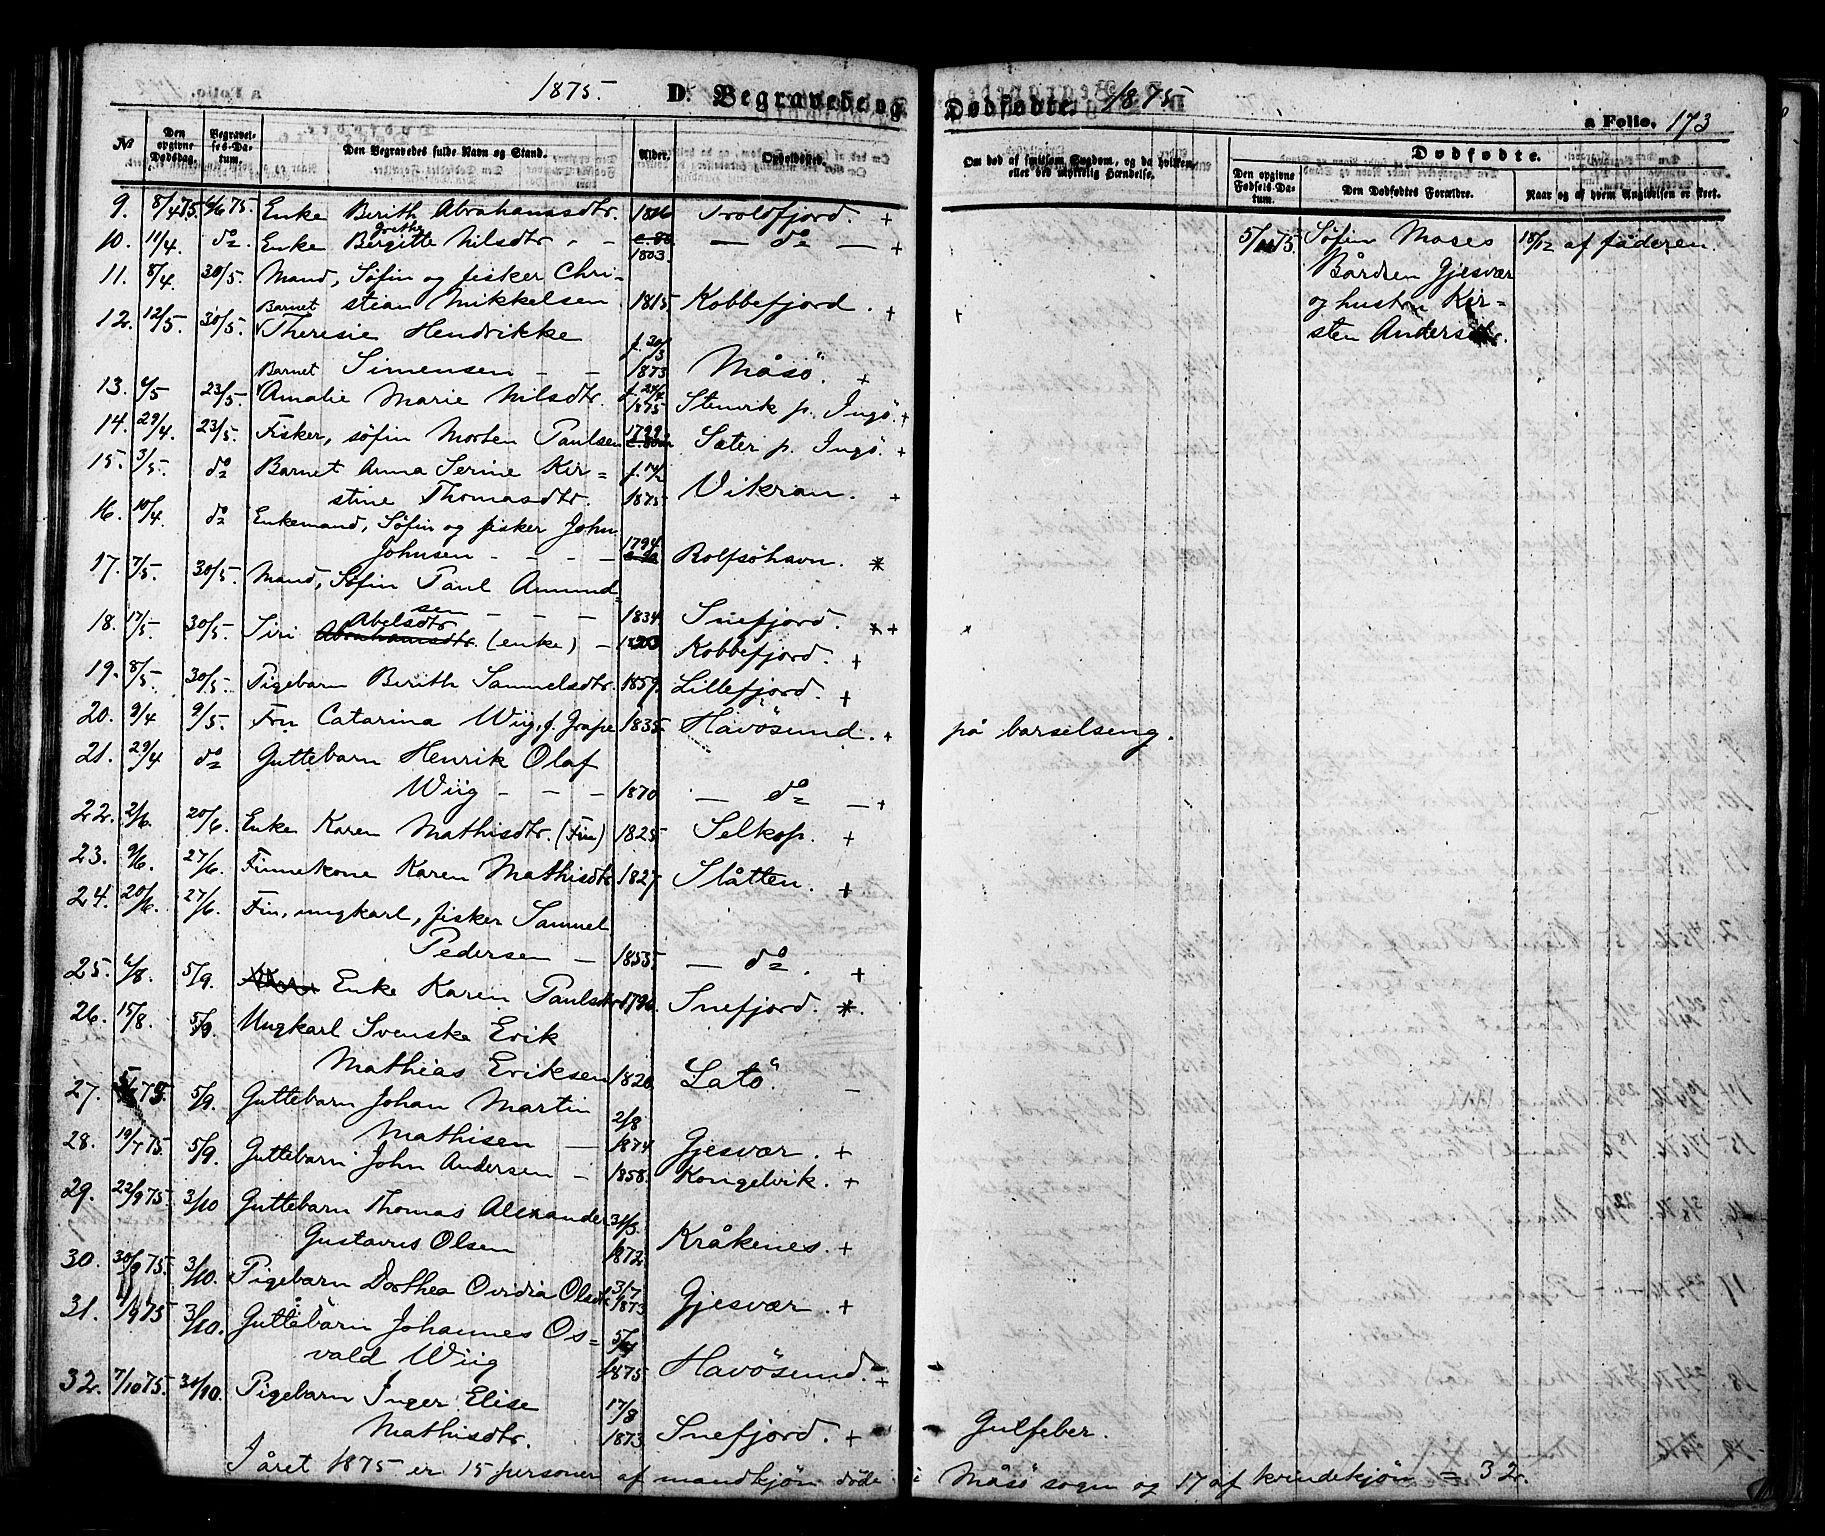 1875. D. Begravede og
№ Den opgivne Dødsdag. Begravelses-Datum. Den Begravedes fulde Navn og Stand. Alder. Opholdssted.
9. 8/4 75 6/6 75. Enke Berith Abrahamsdtr. 1816 Troldfjord. +
10. 11/4. do. Enke Birgitte Nilsdtr - - 1803. — do — +
11. 8/4. 30/5. Mand, Søfin og fisker Chri-
stian Mikkelsen 1815 Kobbefjord. +
12. 12/5. 30/5. Barnet Theresie Hendrikke
Simensen - - f. 20/3 1873 Måsö. +
13. 6/5 23/5. Barnet Amalie Marie Nilsdtr. f. 24/4 1875 Stenvik p. Ingö. +
14. 29/4. 23/5. Fisker, søfin Morten Paulsen 1799. Sæter p. Ingö. +
15. 3/5. do Barnet Anna Serine Kir=
stine Thomasdtr. f. 14/2 1875 Vikran. +
16. 10/4. do Enkemand, Søfin og fisker John
Johnsen - - - 1794. Rolfsöhavn. *
17. 7/5. 30/5. Mand, Søfin Paul Amund=
sen - - - 1834. Snefjord. *+
18. 17/5 30/5. Siri Abelsdtr Abrahamsdtr. (enke) - 1803 Kobbefjord. +
19. 8/5. 30/5. Pigebarn Berith Samuelsdtr. 1859. Lillefjord. +
20. 9/4 9/5. Fru Catarina Wiig, f. Grape 1835. Havösund. +
21. 29/4 do Guttebarn Henrik Olaf
Wiig - - - 1870 — do — +
22. 2/6. 20/6. Enke Karen Mathisdtr. (Fin) 1825 Selkop. +
23. 9/6. 27/6. Finnekone Karen Mathisdtr 1827 Slåtten. +
24. 20/6. 27/6. Fin, ungkarl, fisker Samuel
Pedersen - 1855. — do. +
25. 6/8. 5/9. Enke Karen Paulsdtr 1796. Snefjord. *.
26. 15/8. 5/9. Ungkarl Svenske Erik
Mathias Eriksen 1820. Latö. —
27. 75. 5/9. Guttebarn Johan Martin
Mathisen — 2/8 1874. Gjesvær. +
28. 19/7 75. 5/9. Guttebarn John Andersen - 1858. Kongelvik. +
29. 22/9 75. 3/10 Guttebarn Thomas Alexander
Gustavus Olsen 31/3 1872. Kråkenes. +
30. 30/9 75. 3/10. Pigebarn Dorthea Ovidia Olsdtr. 31/7 1873 Gjesvær. +
31. 1/9 75 3/10. Guttebarn Johannes Os=
vald Wiig 5/4 1875 Havösund. +
32. 7/10 75. 31/10. Pigebarn Inger Elise
Mathisdtr. 17/3 1873. Snefjord. +
I året 1875 er 15 personer af mandkjön döde i
Dødfødte. 1875
a Folio. 173
Om død af smitsom Sygdom, og da hvilken, eller ved ulykkelig Hændelse.
Dødfødte.
Den opgivne Fødsels-Datum. Den Dødfødtes Forældre. Naar og af hvem Anmeldelsen er skeet.
5/11 75. Søfin Moses 18/12 af faderen.
Bårdsen Gjesvær
og hustru Kir=
sten Andersdtr.
på barselseng.
Gulfeber.
Måsö sogn og 17 af kvindekjön = 32.